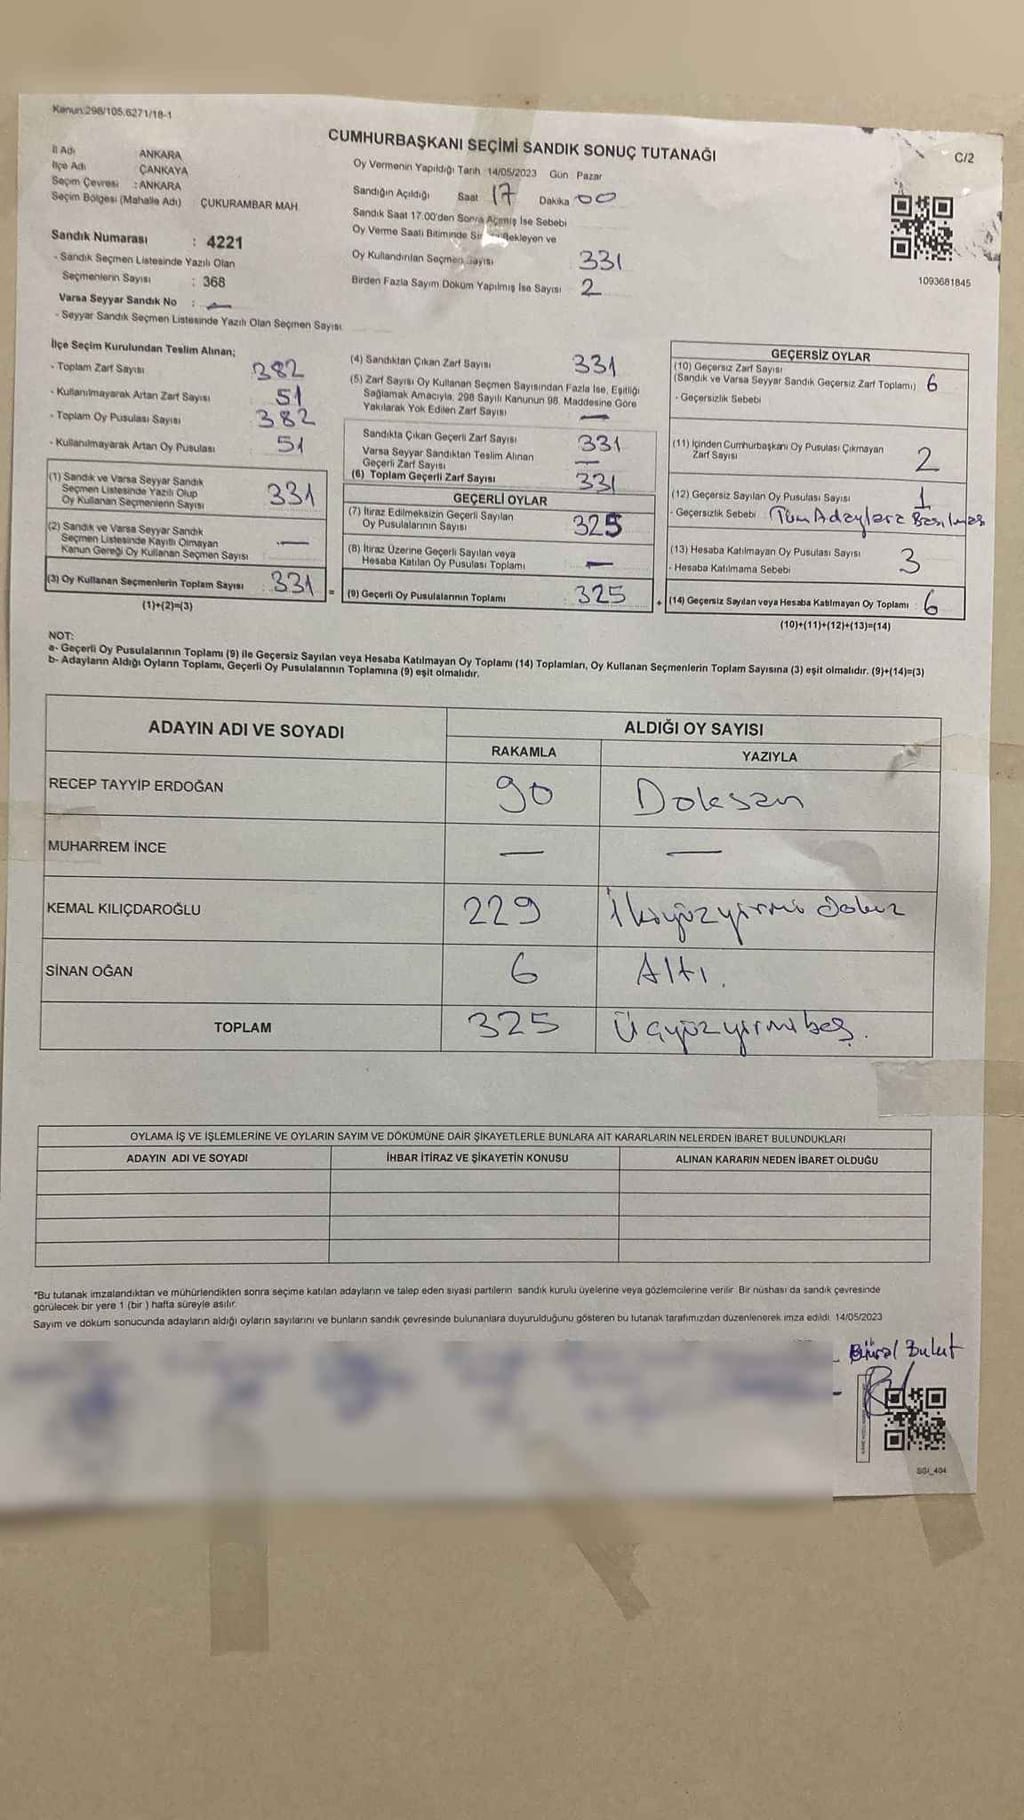 Kanun:298/105,6271/18-1
CUMHURBAŞKANI SEÇİMİ SANDIK SONUÇ TUTANAĞI
C/2
İl Adı ANKARA
İlçe Adı ÇANKAYA
Seçim Çevresi : ANKARA
Seçim Bölgesi (Mahalle Adı) ÇUKURAMBAR MAH.
Sandık Numarası : 4221
- Sandık Seçmen Listesinde Yazılı Olan
Seçmenlerin Sayısı : 368
Varsa Seyyar Sandık No : —
- Seyyar Sandık Seçmen Listesinde Yazılı Olan Seçmen Sayısı
Oy Vermenin Yapıldığı Tarih : 14/05/2023 Gün Pazar
Sandığın Açıldığı Saat 17 Dakika 00
Sandık Saat 17.00'den Sonra Açılmış İse Sebebi
Oy Verme Saati Bitiminde Bekleyen ve
Oy Kullandırılan Seçmen Sayısı 331
Birden Fazla Sayım Döküm Yapılmış İse Sayısı 2
1093681845
İlçe Seçim Kurulundan Teslim Alınan;
- Toplam Zarf Sayısı 382
- Kullanılmayarak Artan Zarf Sayısı 51
- Toplam Oy Pusulası Sayısı 382
- Kullanılmayarak Artan Oy Pusulası 51
(1) Sandık ve Varsa Seyyar Sandık
Seçmen Listesinde Yazılı Olup
Oy Kullanan Seçmenlerin Sayısı 331
(2) Sandık ve Varsa Seyyar Sandık
Seçmen Listesinde Kayıtlı Olmayan
Kanun Gereği Oy Kullanan Seçmen Sayısı —
(3) Oy Kullanan Seçmenlerin Toplam Sayısı 331
(1)+(2)=(3)
=
(4) Sandıktan Çıkan Zarf Sayısı 331
(5) Zarf Sayısı Oy Kullanan Seçmen Sayısından Fazla İse, Eşitliği
Sağlamak Amacıyla, 298 Sayılı Kanunun 98. Maddesine Göre
Yakılarak Yok Edilen Zarf Sayısı —
Sandıkta Çıkan Geçerli Zarf Sayısı 331
Varsa Seyyar Sandıktan Teslim Alınan
Geçerli Zarf Sayısı —
(6) Toplam Geçerli Zarf Sayısı 331
GEÇERLİ OYLAR
(7) İtiraz Edilmeksizin Geçerli Sayılan
Oy Pusulalarının Sayısı 325
(8) İtiraz Üzerine Geçerli Sayılan veya
Hesaba Katılan Oy Pusulası Toplamı —
(9) Geçerli Oy Pusulalarının Toplamı 325
+
GEÇERSİZ OYLAR
(10) Geçersiz Zarf Sayısı
(Sandık ve Varsa Seyyar Sandık Geçersiz Zarf Toplamı) 6
- Geçersizlik Sebebi
(11) İçinden Cumhurbaşkanı Oy Pusulası Çıkmayan
Zarf Sayısı 2
(12) Geçersiz Sayılan Oy Pusulası Sayısı 1
- Geçersizlik Sebebi Tüm Adaylara Basılmış
(13) Hesaba Katılmayan Oy Pusulası Sayısı 3
- Hesaba Katılmama Sebebi
(14) Geçersiz Sayılan veya Hesaba Katılmayan Oy Toplamı : 6
(10)+(11)+(12)+(13)=(14)
NOT:
a- Geçerli Oy Pusulalarının Toplamı (9) ile Geçersiz Sayılan veya Hesaba Katılmayan Oy Toplamı (14) Toplamları, Oy Kullanan Seçmenlerin Toplam Sayısına (3) eşit olmalıdır. (9)+(14)=(3)
b- Adayların Aldığı Oyların Toplamı, Geçerli Oy Pusulalarının Toplamına (9) eşit olmalıdır.
ADAYIN ADI VE SOYADI ALDIĞI OY SAYISI
RAKAMLA YAZIYLA
RECEP TAYYİP ERDOĞAN 90 Doksan
MUHARREM İNCE — —
KEMAL KILIÇDAROĞLU 229 İkiyüzyirmi dokuz
SİNAN OĞAN 6 Altı.
TOPLAM 325 Üçyüzyirmibeş.
OYLAMA İŞ VE İŞLEMLERİNE VE OYLARIN SAYIM VE DÖKÜMÜNE DAİR ŞİKAYETLERLE BUNLARA AİT KARARLARIN NELERDEN İBARET BULUNDUKLARI
ADAYIN ADI VE SOYADI İHBAR İTİRAZ VE ŞİKAYETİN KONUSU ALINAN KARARIN NEDEN İBARET OLDUĞU
*Bu tutanak imzalandıktan ve mühürlendikten sonra seçime katılan adayların ve talep eden siyasi partilerin sandık kurulu üyelerine veya gözlemcilerine verilir. Bir nüshası da sandık çevresinde
görülecek bir yere 1 (bir ) hafta süreyle asılır.
Sayım ve döküm sonucunda adayların aldığı oyların sayılarını ve bunların sandık çevresinde bulunanlara duyurulduğunu gösteren bu tutanak tarafımızdan düzenlenerek imza edildi. 14/05/2023
Bulut
SGI_404